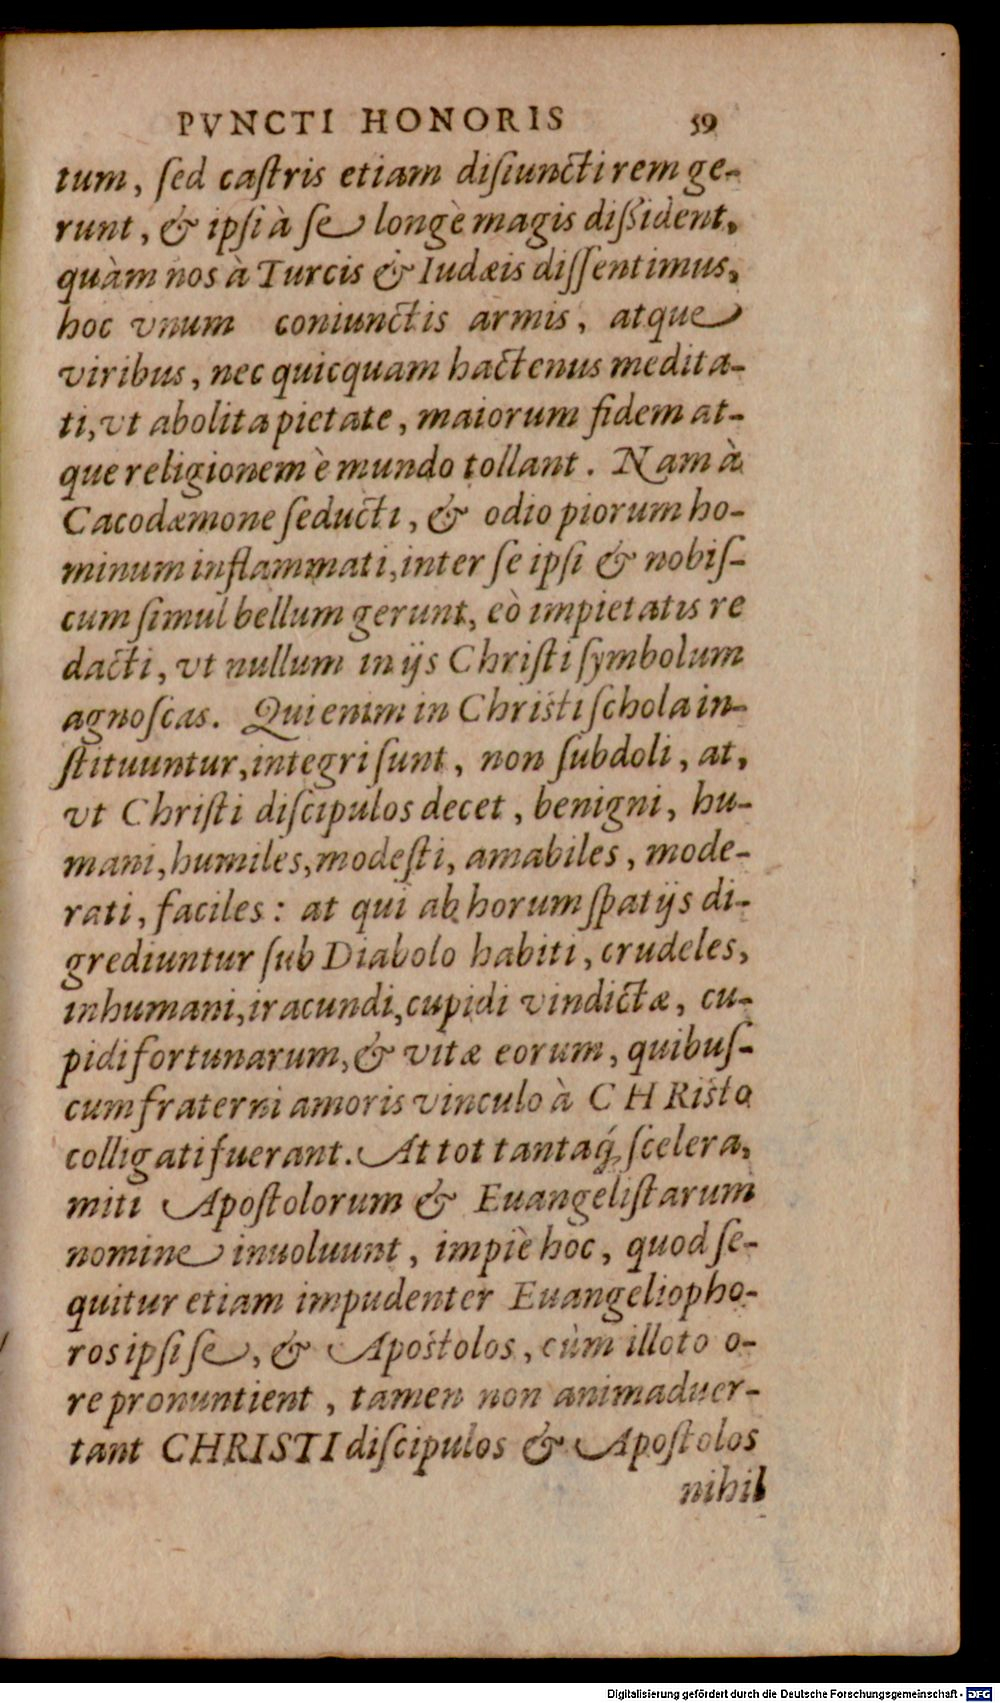 PVNCTI HONORIS 59
tum, ſed caſtris etiam diſiuncti rem ge-
runt, & ipſi à ſe longè magis diſſident,
quàm nos à Turcis & Iudæis diſſentimus,
hoc vnum coniunctis armis, atque
viribus, nec quicquam hactenus medita-
ti, vt abolita pietate, maiorum fidem at-
que religionem è mundo tollant. Nam à
Cacodæmone ſeducti, & odio piorum ho-
minum inflammati, inter ſe ipſi & nobiſ-
cum ſimul bellum gerunt, eò impietatis re
dacti, vt nullum in ijs Chriſti ſymbolum
agnoſcas. Qui enim in Chriſti ſchola in-
ſtituuntur, integri ſunt, non ſubdoli, at,
vt Chriſti diſcipulos decet, benigni, hu-
mani, humiles, modeſti, amabiles, mode-
rati, faciles: at qui ab horum ſpatijs di-
grediuntur ſub Diabolo habiti, crudeles,
inhumani, iracundi, cupidi vindictæ, cu-
pidi fortunarum, & vitæ eorum, quibuſ-
cum fraterni amoris vinculo à CHRiſto
colligati fuerant. At tot tantaq́; ſcelera,
miti Apoſtolorum & Euangeliſtarum
nomine inuoluunt, impiè hoc, quod ſe-
quitur etiam impudenter Euangeliopho-
ros ipſi ſe, & Apoſtolos, cùm illoto o-
re pronuntient, tamen non animaduer-
tant CHRISTI diſcipulos & Apoſtolos
nihil
Digitalisierung gefördert durch die Deutsche Forschungsgemeinschaft - DFG